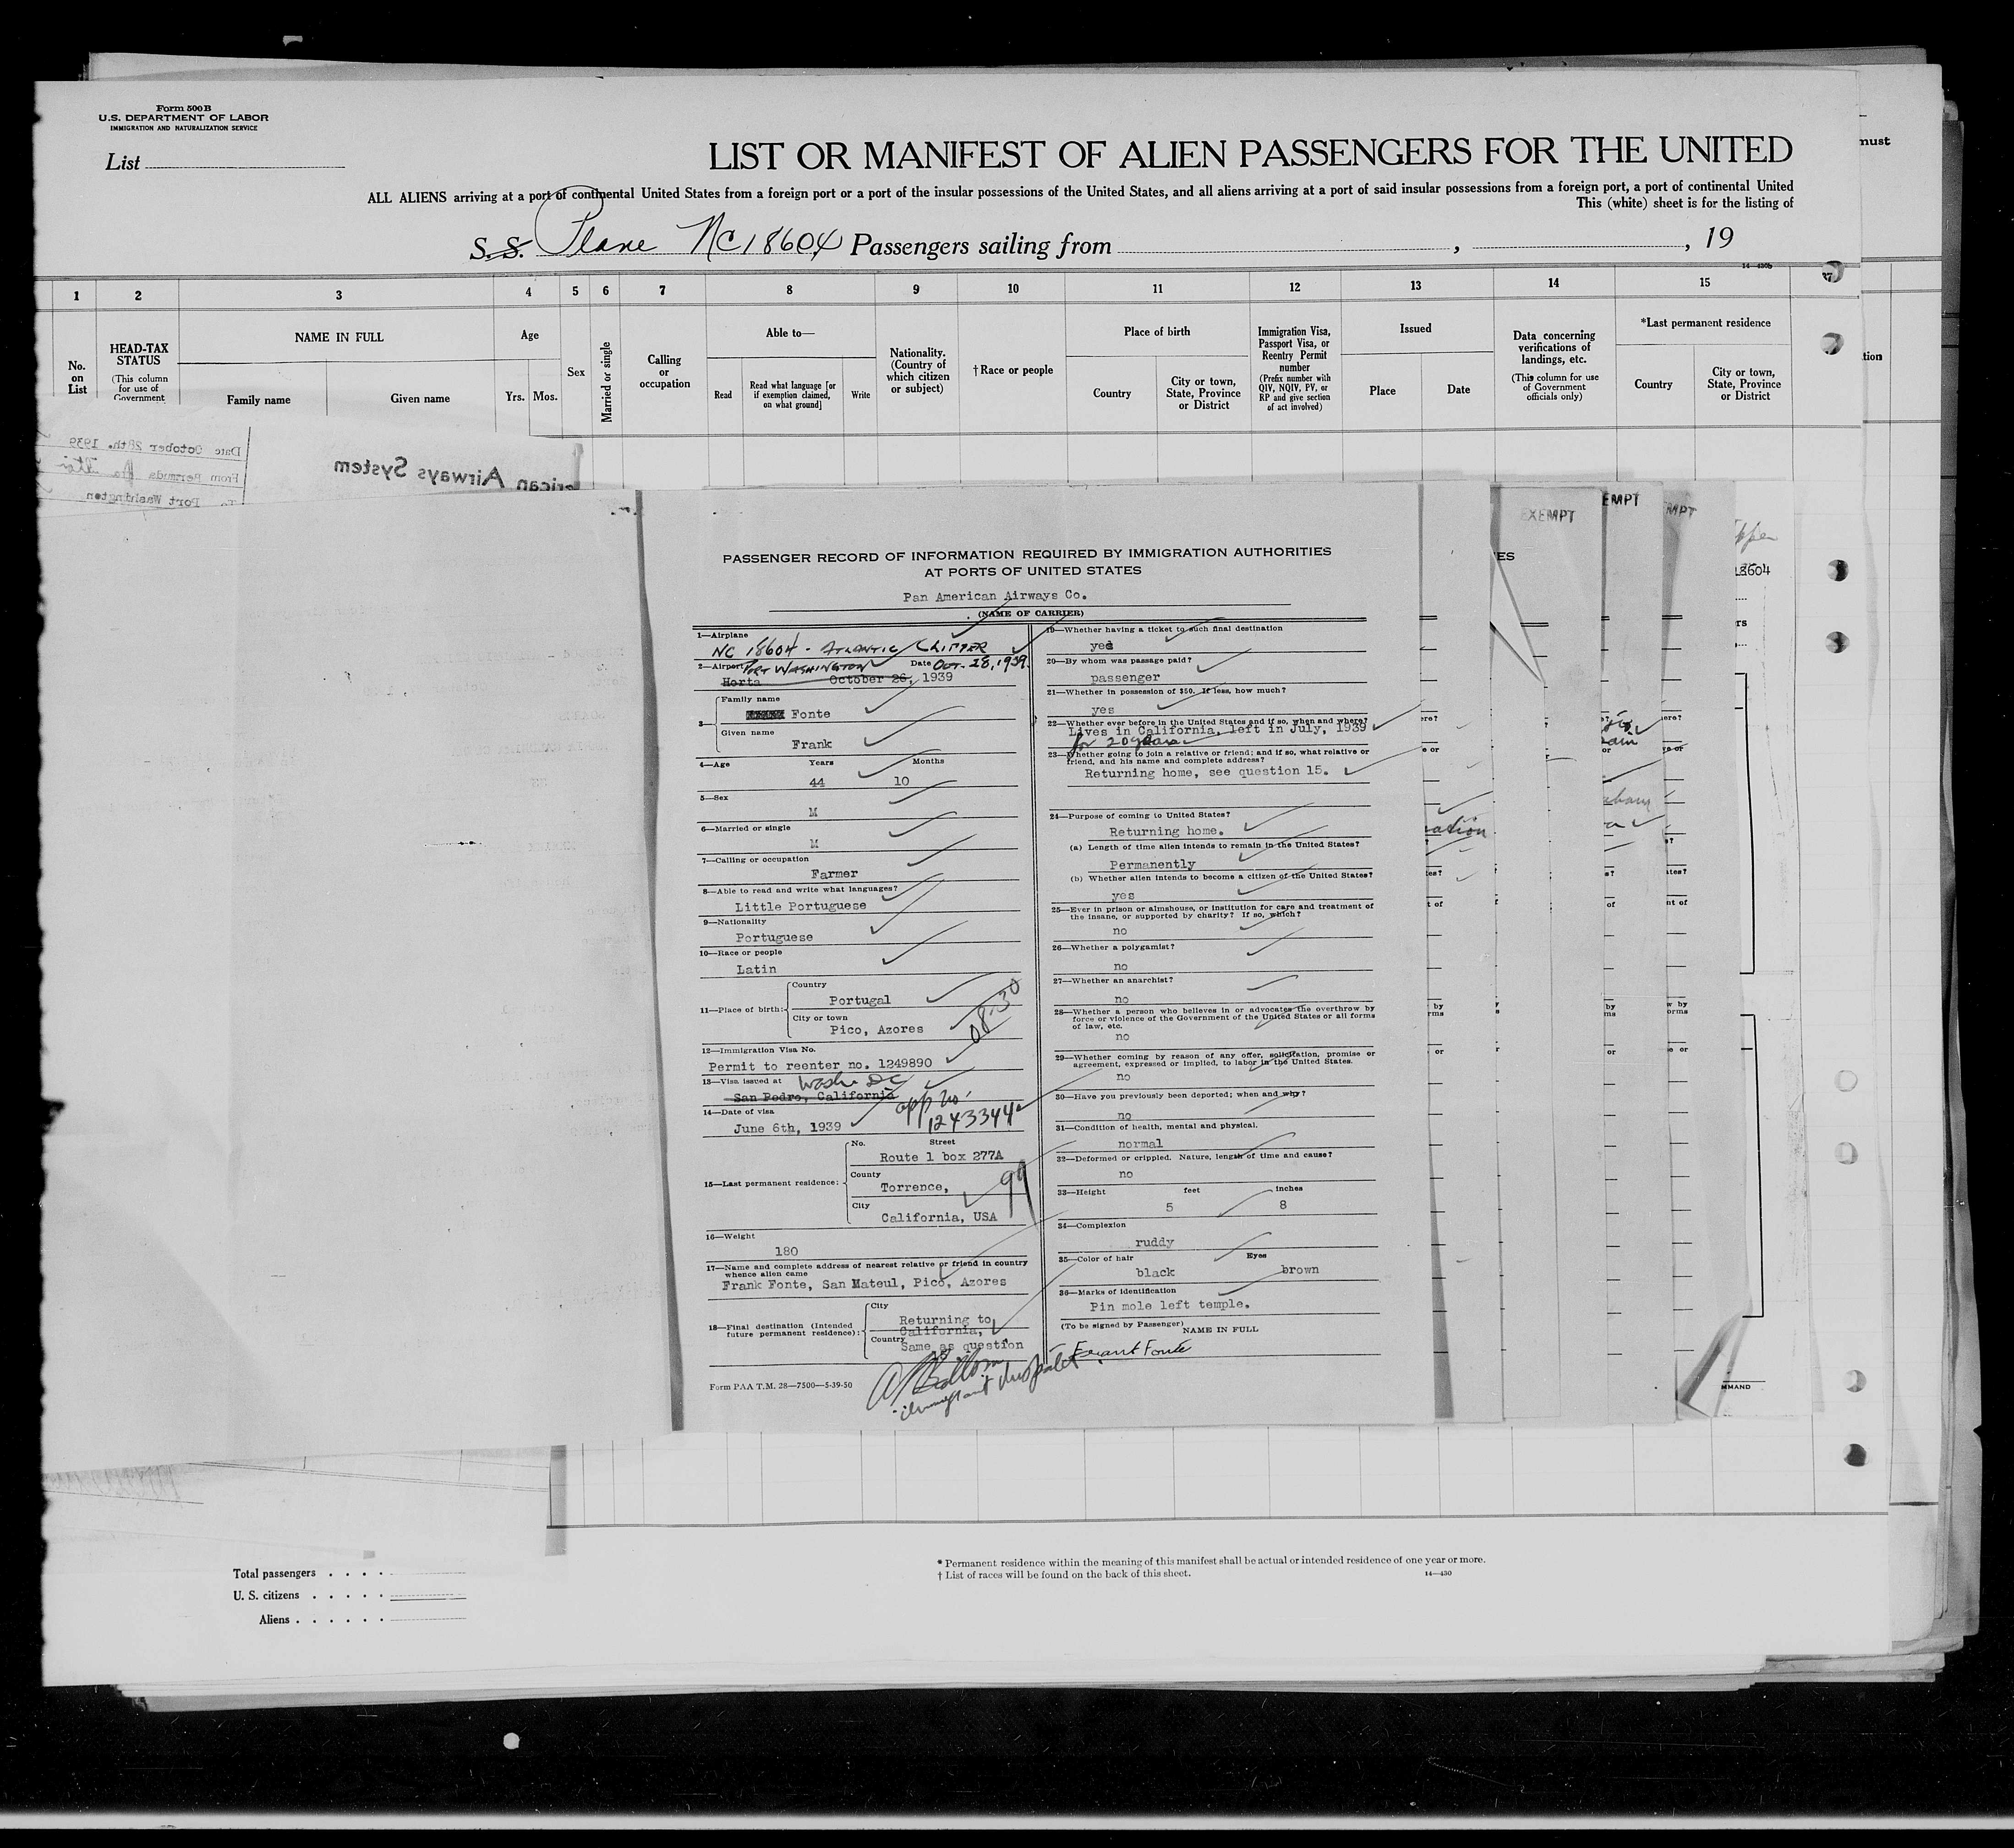 Form 500B
U.S. DEPARTMENT OF LABOR
IMMIGRATION AND NATURALIZATION SERVICE
List
LIST OR MANIFEST OF ALIEN PASSENGERS FOR THE UNITED
ALL ALIENS arriving at a port of continental United States from a foreign port or a port of the insular possessions of the United States, and all aliens arriving at a port of said insular possessions from a foreign port, a port of continental United
This (white) sheet is for the listing of
S.S. Plane NC18604 Passengers sailing from , , 19
14—430b
must
1 2 3 4 5 6 7 8 9 10 11 12 13 14 15
No. on List
HEAD-TAX STATUS
(This column for use of Government
NAME IN FULL
Family name
Given name
Age
Yrs. Mos.
Sex
Married or single
Calling or occupation
Able to—
Read
Read what language [or if exemption claimed, on what ground]
Write
Nationality. (Country of which citizen or subject)
†Race or people
Place of birth
Country
City or town, State, Province or District
Immigration Visa, Passport Visa, or Reentry Permit number
(Prefix number with QIV, NQIV, PV, or RP and give section of act involved)
Issued
Place
Date
Data concerning verifications of landings, etc.
(This column for use of Government officials only)
*Last permanent residence
Country
City or town, State, Province or District
tion
Date October 28th. 1939
From Bermuda
To Port Washington
erican Airways System
EXEMPT
EMPT
MPT
18604
PASSENGER RECORD OF INFORMATION REQUIRED BY IMMIGRATION AUTHORITIES
AT PORTS OF UNITED STATES
Pan American Airways Co.
(NAME OF CARRIER)
1—Airplane
NC 18604 - ATLANTIC CLIPPER
2—Airport PORT WASHINGTON Date OCT. 28, 1939.
Horta October 26, 1939
3— Family name
Fonte
Given name
Frank
4—Age Years Months
44 10
5—Sex
M
6—Married or single
M
7—Calling or occupation
Farmer
8—Able to read and write what languages?
Little Portuguese
9—Nationality
Portuguese
10—Race or people
Latin
11—Place of birth: Country
Portugal
City or town
Pico, Azores
08-30
12—Immigration Visa No.
Permit to reenter no. 1249890
13—Visa issued at Wash DC
San Pedro, California
14—Date of visa app no.
June 6th, 1939 1243344
15—Last permanent residence: No. Street
Route 1 box 277A
County
Torrence,
99
City
California, USA
16—Weight
180
17—Name and complete address of nearest relative or friend in country
whence alien came
Frank Fonte, San Mateul, Pico, Azores
18—Final destination (Intended future permanent residence): City
Returning to
California,
Country
Same as question
15
Form PAA T.M. 28—7500—5-39-50
19—Whether having a ticket to such final destination
yes
20—By whom was passage paid?
passenger
21—Whether in possession of $50. If less, how much?
yes
22—Whether ever before in the United States and if so, when and where?
Lives in California, left in July, 1939
for 20 years
23—Whether going to join a relative or friend; and if so, what relative or
friend, and his name and complete address?
Returning home, see question 15.
24—Purpose of coming to United States?
Returning home.
(a) Length of time alien intends to remain in the United States?
Permanently
(b) Whether alien intends to become a citizen of the United States?
yes
25—Ever in prison or almshouse, or institution for care and treatment of
the insane, or supported by charity? If so, which?
no
26—Whether a polygamist?
no
27—Whether an anarchist?
no
28—Whether a person who believes in or advocates the overthrow by
force or violence of the Government of the United States or all forms
of law, etc.
no
29—Whether coming by reason of any offer, solicitation, promise or
agreement, expressed or implied, to labor in the United States.
no
30—Have you previously been deported; when and why?
no
31—Condition of health, mental and physical.
normal
32—Deformed or crippled. Nature, length of time and cause?
no
33—Height feet inches
5 8
34—Complexion
ruddy
35—Color of hair Eyes
black brown
36—Marks of identification
Pin mole left temple.
(To be signed by Passenger)
NAME IN FULL
Frank Fonte
Immigrant Inspector
MMAND
Total passengers . . . .
U. S. citizens . . . . .
Aliens . . . . . .
* Permanent residence within the meaning of this manifest shall be actual or intended residence of one year or more.
† List of races will be found on the back of this sheet. 14—430